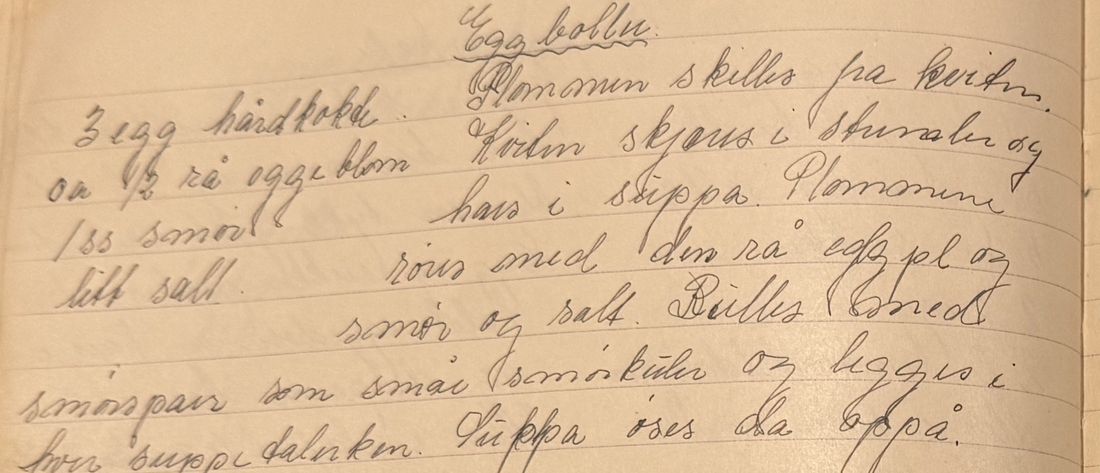 Egg boller.
3 egg hårdkokte.
ca 1/2 rå eggeblom
1 ss smør
litt salt.
Plommen skilles fra kviten.
Kviten skjæres i strimler og
haes i suppa. Plommene
røres med den rå egg pl og
smør og salt. Rulles med
smørspaer som små smørkuler og legges i
hver suppetalerken. Suppa øses da oppå.